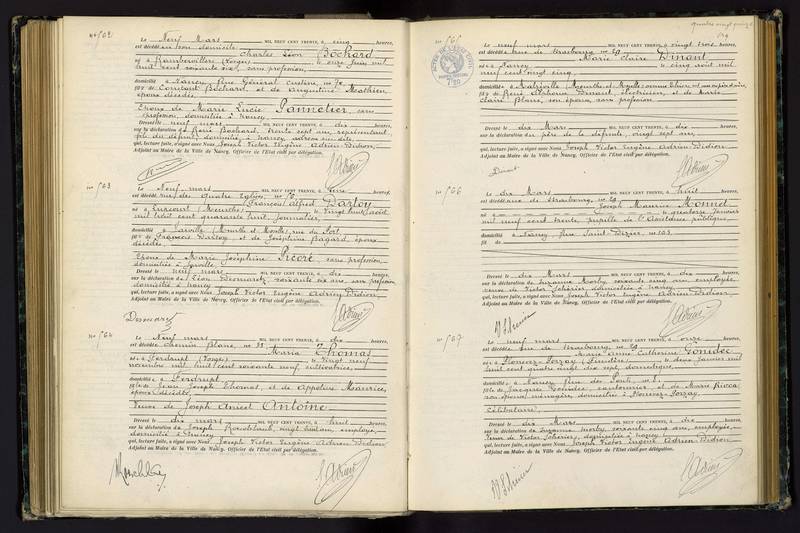 No 502
Le Neuf Mars MIL NEUF CENT TRENTE, à cinq heures,
est décédé en son domicile
Charles Léon Bochard
né à Rambervillers (Vosges) le onze Juin mil
huit cent soixante six, sans profession,
domicilié à Nancy, Rue Général Custine, no 72
fils de Constant Bochard, et de Augustine Mathieu,
époux décédés,
Epoux de Marie Lucie Pannetier, sans
profession, domiciliée à Nancy.
Dressé le neuf mars MIL NEUF CENT TRENTE, à dix heures,
sur la déclaration de René Bochard, trente sept ans, représentant,
fils du défunt, domicilié à Nancy,
qui, lecture faite, a signé avec Nous Joseph Victor Eugène Adrien Didion
Adjoint au Maire de la Ville de Nancy, Officier de l'Etat civil par délégation.
No 503
Le Neuf mars MIL NEUF CENT TRENTE, à heures,
est décédé rue des Quatre Eglises, no
François Alfred Dartoy
né à (Meurthe) le vingt huit août
mil huit cent quarante huit, journalier,
domicilié à Jarville (Meurthe et Moselle), rue du Port
fils de François Dartoy et de Joséphine Bagard, époux
décédés,
Epoux de Marie Joséphine Picoré, sans profession,
domiciliée à Jarville
Dressé le neuf mars MIL NEUF CENT TRENTE, à dix heures,
sur la déclaration de Léon Desmaretz, soixante six ans, sans profession,
domicilié à Nancy
qui, lecture faite, a signé avec Nous Joseph Victor Eugène Adrien Didion
Adjoint au Maire de la Ville de Nancy, Officier de l'Etat civil par délégation.
No 504
Le Neuf mars MIL NEUF CENT TRENTE, à dix heures,
est décédée Chemin Blanc, no
Maria Thomas
née à Ferdrupt (Vosges) le vingt neuf
novembre mil huit cent soixante neuf, cultivatrice,
domiciliée à Ferdrupt
fille de Jean Joseph Thomas, et de Appoline Maurice,
époux décédés
Veuve de Joseph Antoine
Dressé le dix mars MIL NEUF CENT TRENTE, à huit heures,
sur la déclaration de Joseph vingt huit ans, employé,
domicilié à Nancy
qui, lecture faite, a signé avec Nous Joseph Victor Eugène Adrien Didion
Adjoint au Maire de la Ville de Nancy, Officier de l'Etat civil par délégation.
No 505
Le neuf mars MIL NEUF CENT TRENTE, à vingt trois heures,
est décédée rue de Strasbourg no 29
Marie Claire Dimant
née à Nancy le cinq août mil
neuf cent vingt cinq,
domiciliée à (Meurthe et Moselle)
fille de René Alphonse Dimant, électricien, et de Marie
Claire Blaise, son épouse, sans profession
Dressé le dix Mars MIL NEUF CENT TRENTE, à dix heures,
sur la déclaration du père de la défunte, vingt sept ans,
qui, lecture faite, a signé avec Nous Joseph Victor Eugène Adrien Didion
Adjoint au Maire de la Ville de Nancy, Officier de l'Etat civil par délégation.
No 506
Le dix Mars MIL NEUF CENT TRENTE, à huit heures,
est décédé rue de Strasbourg, no 29
Joseph Maurice Monnet
né à le quatorze Janvier
mil neuf cent trente, pupille de l'Assistance publique,
domicilié à Nancy, Rue Saint Dizier, no 103
fils de
Dressé le dix Mars MIL NEUF CENT TRENTE, à dix heures,
sur la déclaration de Suzanne Morly, soixante cinq ans, employée,
veuve de Victor domiciliée à Nancy
qui, lecture faite, a signé avec Nous Joseph Victor Eugène Adrien Didion
Adjoint au Maire de la Ville de Nancy, Officier de l'Etat civil par délégation.
No 507
Le neuf mars MIL NEUF CENT TRENTE, à onze heures,
est décédée rue de Strasbourg no 29
Marie Anne Catherine Gonidec
née à (Finistère) le deux Janvier mil
huit cent quatre vingt dix sept, domestique,
domiciliée à Nancy, Rue des Ponts,
fille de Jacques Gonidec, cantonnier, et de Marie
son épouse, ménagère, domiciliés à
Célibataire,
Dressé le dix Mars MIL NEUF CENT TRENTE, à dix heures,
sur la déclaration de Suzanne Morly, soixante cinq ans, employée,
veuve de Victor domiciliée à Nancy
qui, lecture faite, a signé avec Nous Joseph Victor Eugène Adrien Didion
Adjoint au Maire de la Ville de Nancy, Officier de l'Etat civil par délégation.